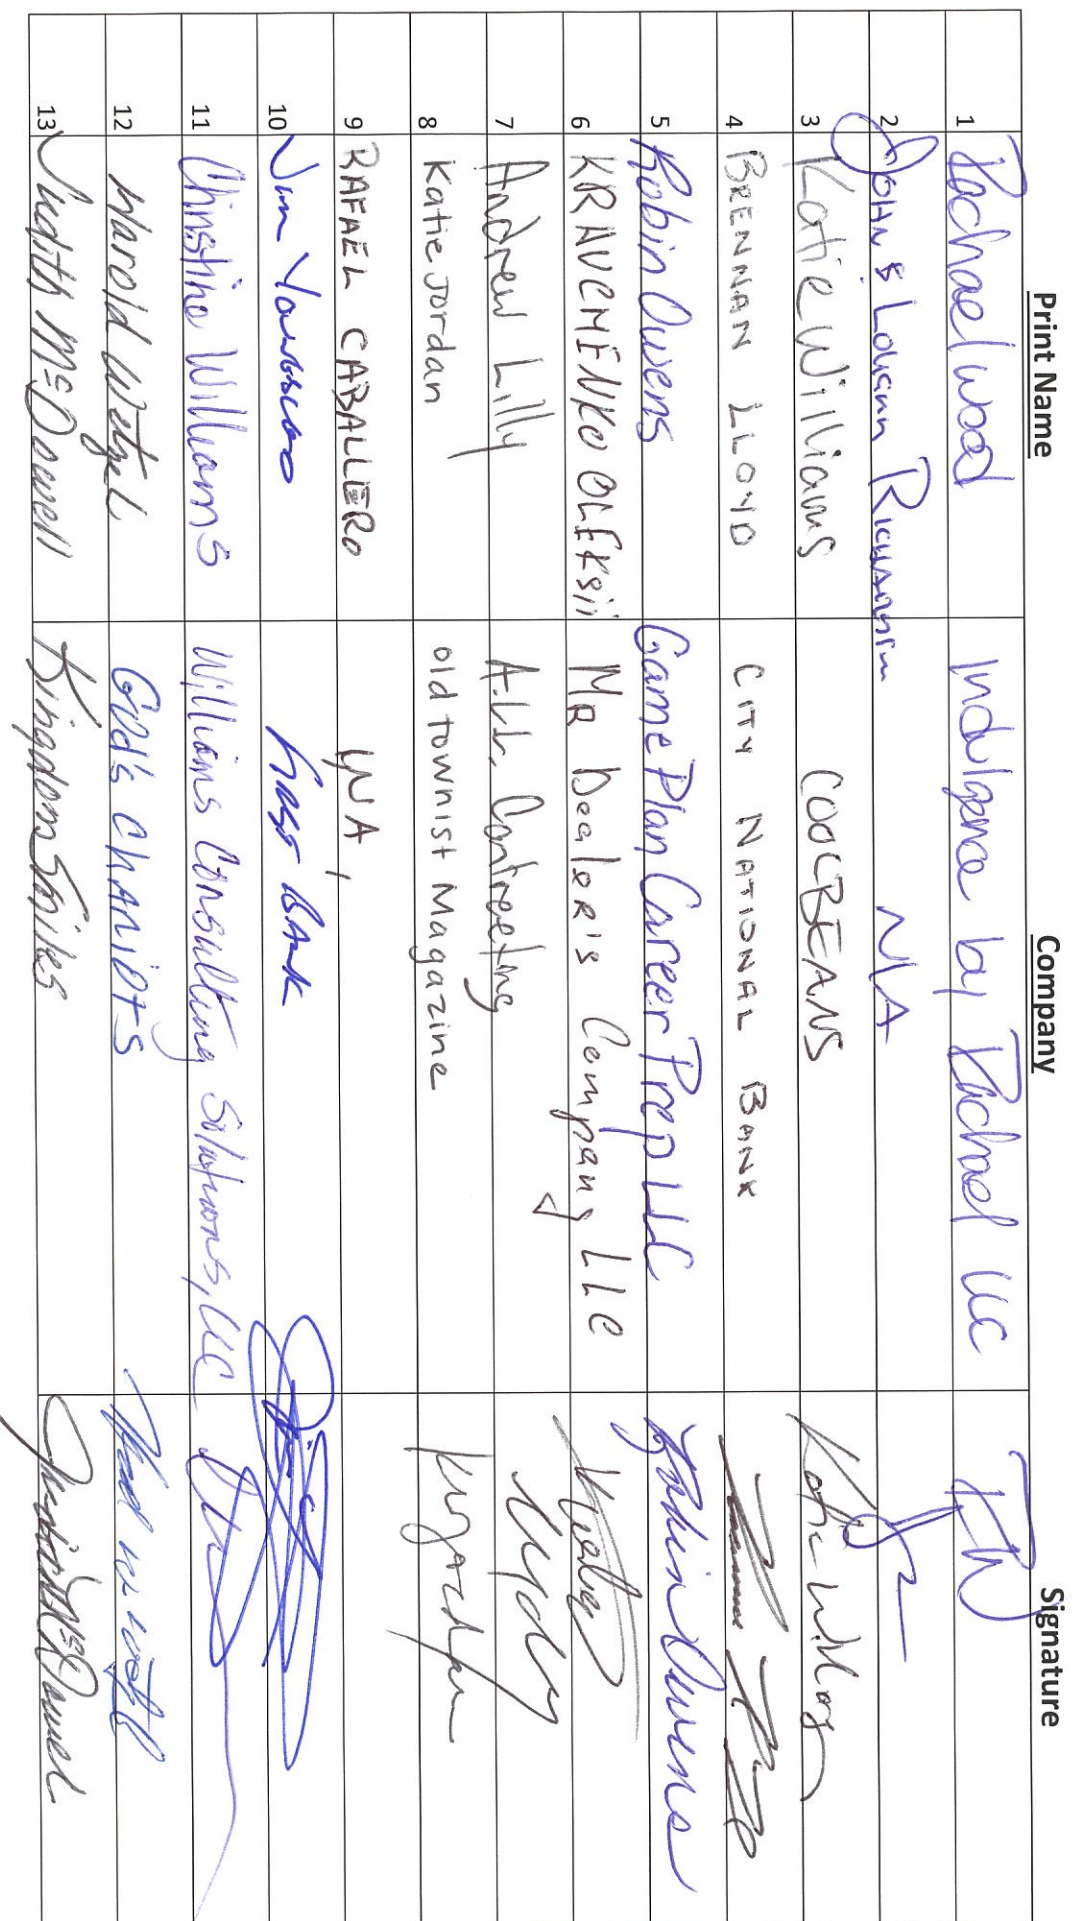 Print Name Company Signature
1 Rachael Wood Indulgence by Rachael LLC RW
2 JOHN & Louann N/A
3 Katie Williams COOLBEANS Katie Williams
4 BRENNAN LLOYD CITY NATIONAL BANK
5 Robin Owens Game Plan Career Prep LLC Robin Owens
6 KRAVCHENKO OLEKSii MR Dealer's Company LLC
7 Andrew Lilly A.L.L. Contracting
8 Katie Jordan Old Townist Magazine
9 RAFAEL CABALLERO N/A
10 Jim BANK
11 Christine Williams Williams Consulting Solutions, LLC
12 Harold Wetzel God's CHARIOTS
13 Judith McDowell Kingdom Smiles Judith McDowell